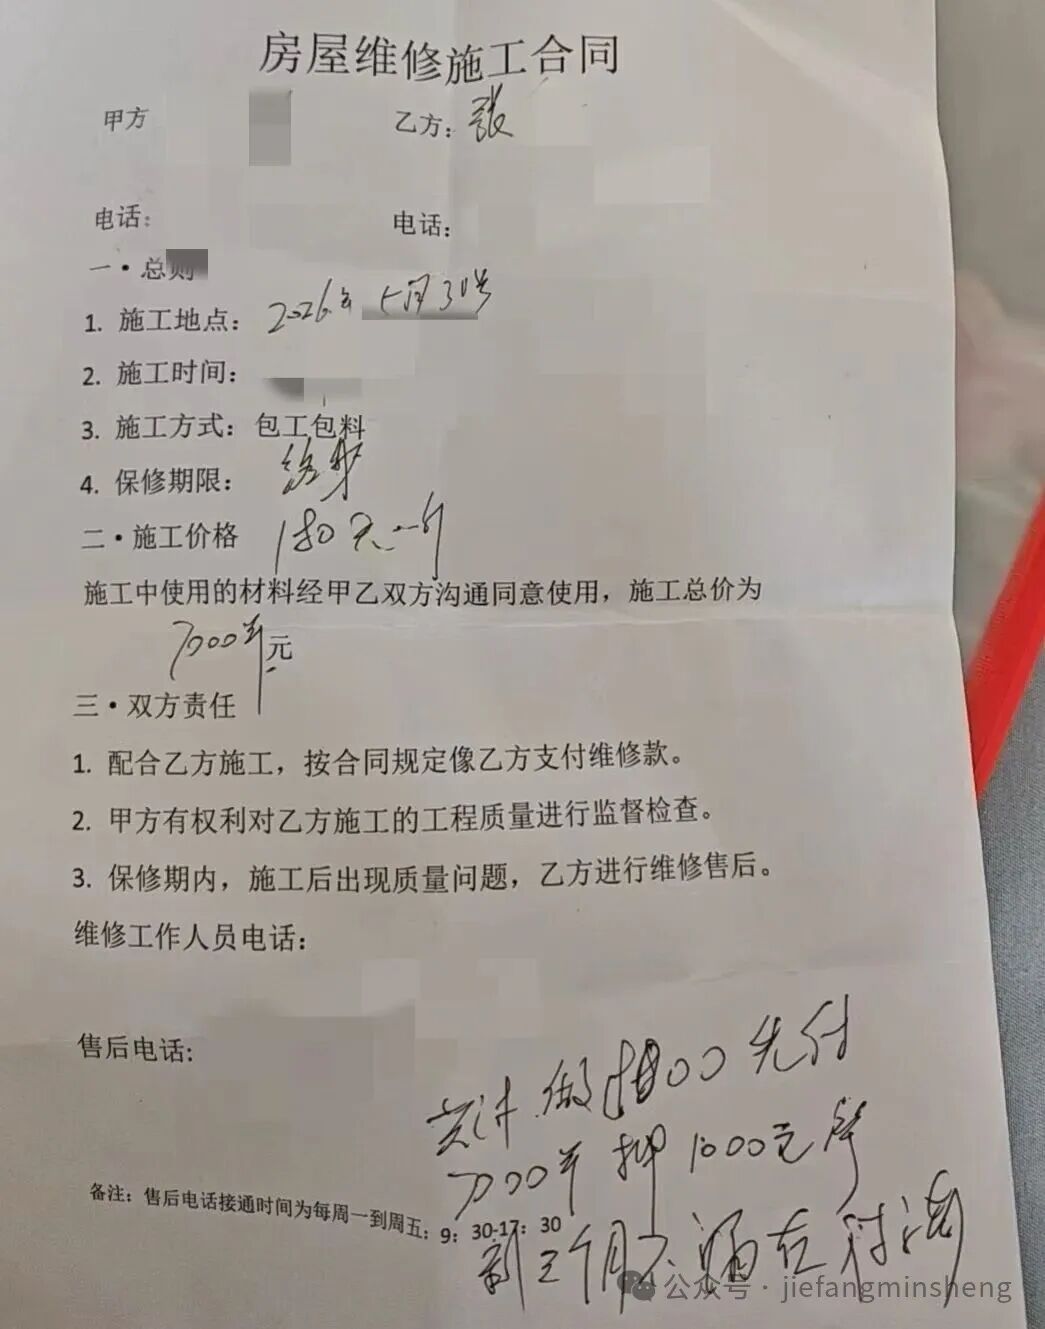 房屋维修施工合同
甲方 乙方：张
电话： 电话：
一·总则
1. 施工地点： 2026年5月30号
2. 施工时间：
3. 施工方式：包工包料
4. 保修期限： 终身
二·施工价格 180元一
施工中使用的材料经甲乙双方沟通同意使用，施工总价为
7000 元
三·双方责任
1. 配合乙方施工，按合同规定像乙方支付维修款。
2. 甲方有权利对乙方施工的工程质量进行监督检查。
3. 保修期内，施工后出现质量问题，乙方进行维修售后。
维修工作人员电话：
售后电话:
共计做8000先付
7000 押1000元
备注：售后电话接通时间为每周一到周五：9：30-17：30
到三个月不漏在付清
公众号·jiefangminsheng